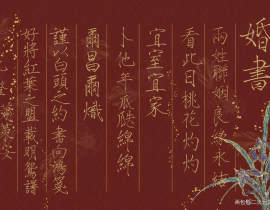 婚書
兩姓聯姻良緣永結
看此日桃花灼灼
宜室宜家
卜他年瓜瓞綿綿
爾昌爾熾
謹以白頭之約書向鴻箋
好將紅葉之盟載明鴛譜